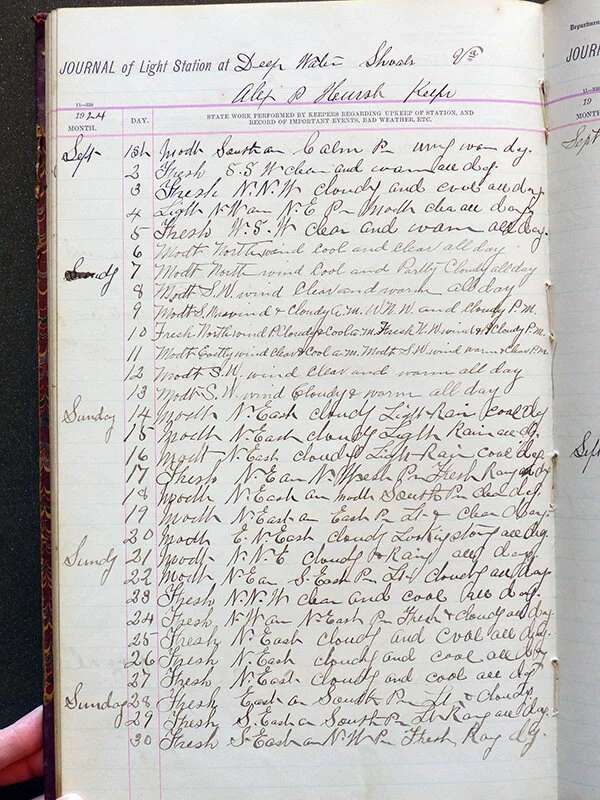 JOURNAL of Light Station at Deep Water Shoals Va
Alex P Hursh Keeper
11—338
1924
MONTH.
DAY.
STATE WORK PERFORMED BY KEEPERS REGARDING UPKEEP OF STATION, AND
RECORD OF IMPORTANT EVENTS, BAD WEATHER, ETC.
Sept 1st Modt South am Calm Pm day.
2 Fresh S.S.W clear and warm all day
3 Fresh N.N.W cloudy and cool all day
4 Light N.W am N.E Pm Modth clear all day
5 Fresh W.S.W clear and warm all day.
6 Modt North wind Cool and clear all day
Sundy 7 Modt North wind Cool and Partly Cloudy all day
8 Modt S.W. wind Clear and warm all day
9 Modt S.W. wind & Cloudy a.m. W.N.W. and Cloudy P.m.
10 Fresh North wind P. Cloudy & Cool a.m. Fresh N.W. wind & P. Cloudy P.m.
11 Modt Eastly wind Clear & Cool a.m. Modt S.W. wind warm & Clear P.m.
12 Modt S.W. wind Clear and warm all day
13 Modt S.W. wind Cloudy & warm all day
Sunday 14 Modth N.East cloudy Light Rain cool day
15 Modth N.East cloudy Light Rain all day.
16 Modt N.East cloudy Light Rain cool day
17 Fresh N.E am N.W Fresh Pm Fresh Rany day
18 Modth N.East am Modth South Pm clear day.
19 Modth N.East am East Pm Lt & clear day
20 Modth E.N.East cloudy Looking stormy all day.
Sundy 21 Modt N.N.E cloudy & Rany all day
22 Modt N.E am S.East Pm Lt & Cloudy all day
23 Fresh N.N.W clear and cool all day.
24 Fresh N.W am N.East Pm Fresh & cloudy all day
25 Fresh N.East cloudy and cool all day.
26 Fresh N.East cloudy and cool all day
27 Fresh N.East cloudy and cool all day
Sunday 28 Fresh East am South Pm Lt & Cloudy
29 Fresh S.East am South Pm Lt Rany all day
30 Fresh S.East am N.W Pm Fresh Rany day.
Department
JOUR
19
MONTH.
Sept
Sept